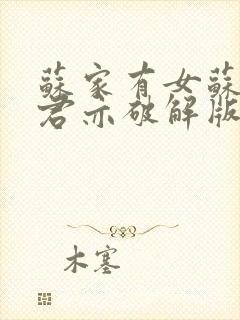 蘇家有女蘇
君亦破解版
木塞